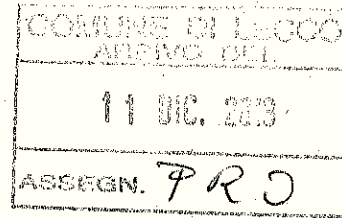 COMUNE DI LECCO
ARRIVO DEL
11 DIC. 2013
ASSEGN. PRO